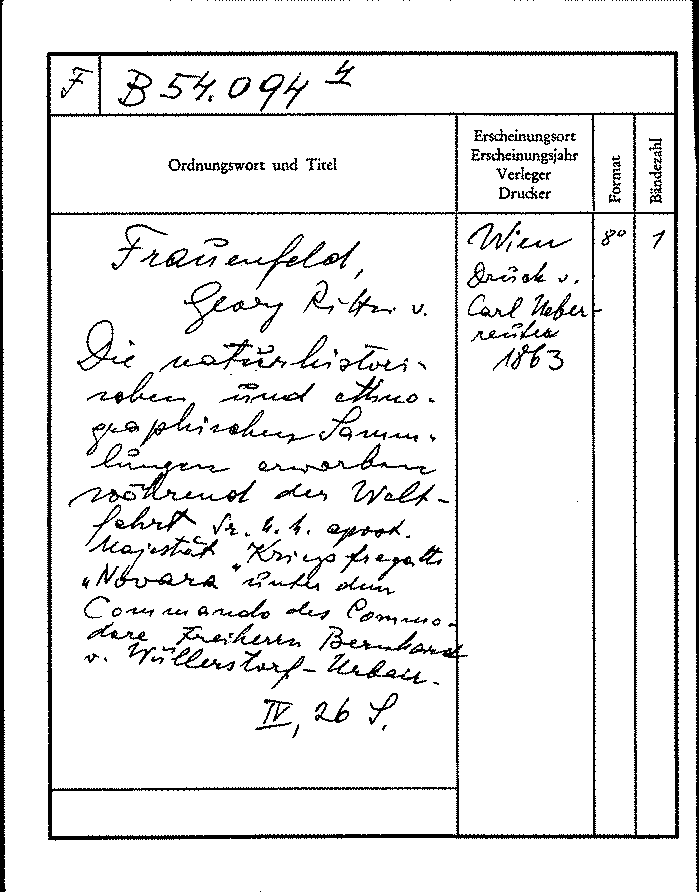 F B 54.094 4
Ordnungswort und Titel
Erscheinungsort
Erscheinungsjahr
Verleger
Drucker
Format
Bändezahl
Frauenfeld,
Georg Ritter v.
Die naturhistori-
schen und ethno-
graphischen Samm-
lungen erworben
während der Welt-
fahrt Sr. k. k. apost.
Majestät Kriegsfregatte
„Novara" unter dem
Commando des Commo-
dore Freiherrn Bernhard
v. Wüllerstorf-Urbair-
IV, 26 S.
Wien
Druck v.
Carl Ueber-
reuter
1863
8°
1